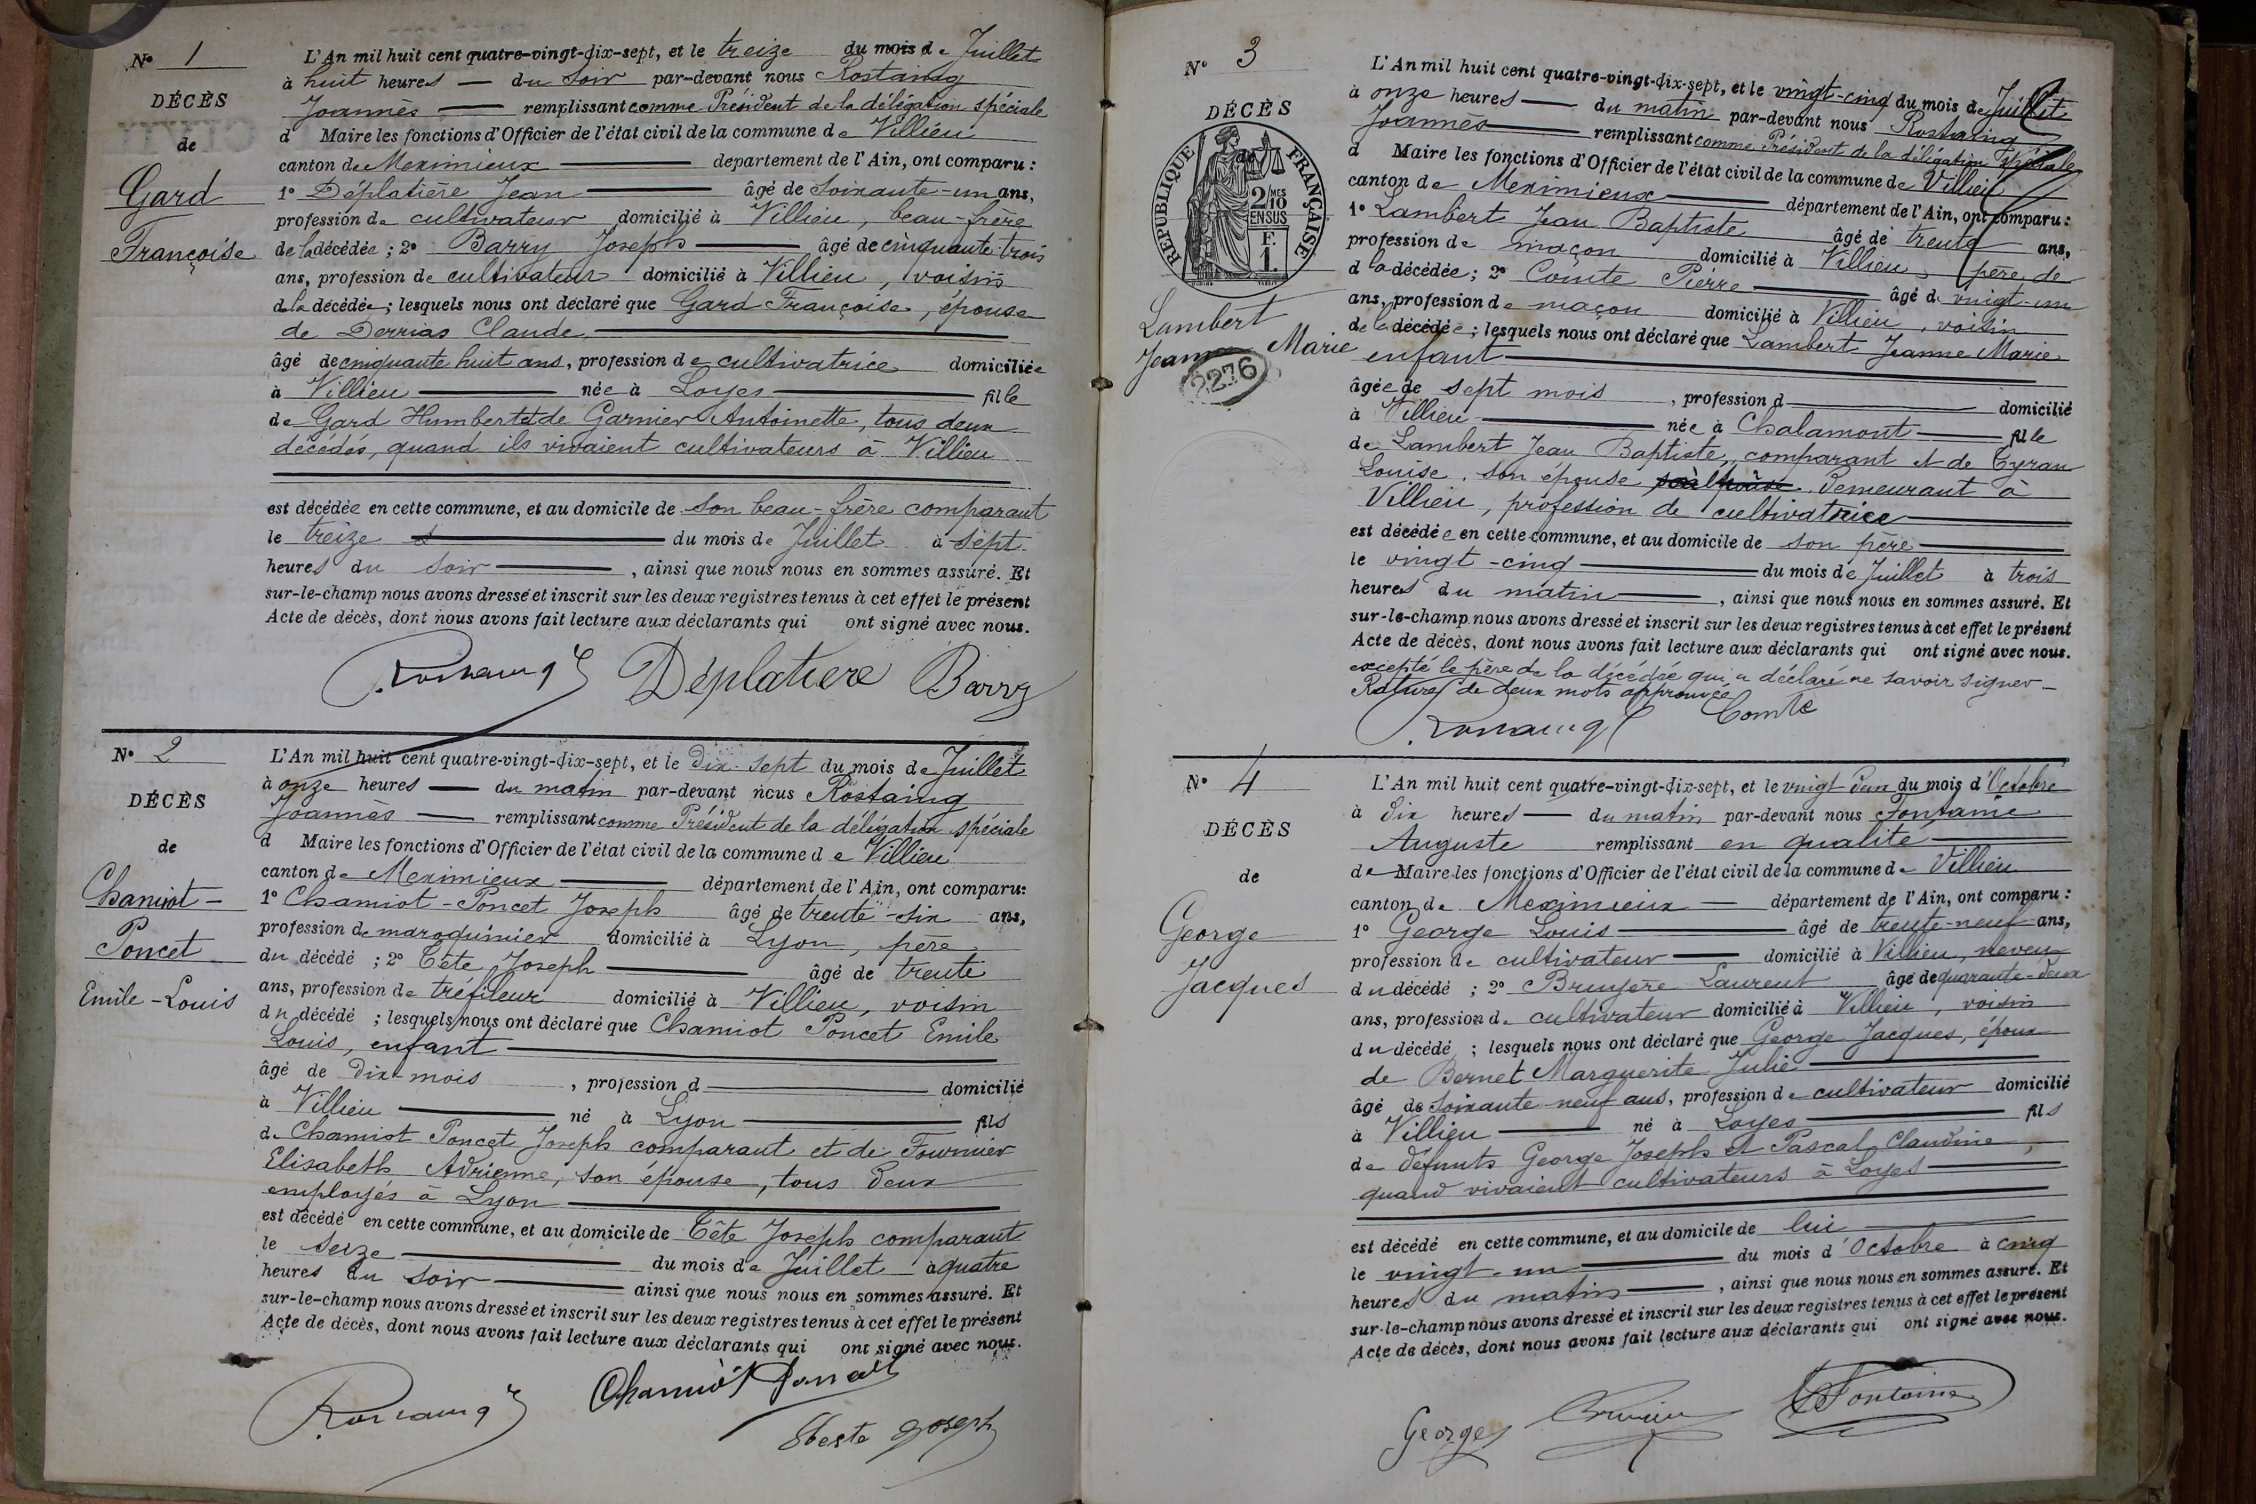 N° 1
DÉCÈS
de
Gard
Françoise
L'An mil huit cent quatre-vingt-dix-sept, et le treize du mois de Juillet
à huit heures du soir par-devant nous Rostaing
Joannès remplissant comme Président de la délégation spéciale
d Maire les fonctions d'Officier de l'état civil de la commune de Villieu
canton de Meximieux département de l'Ain, ont comparu :
1° Déplatière Jean âgé de soixante-un ans,
profession de cultivateur domicilié à Villieu, beau-frère
de la décédée ; 2° Barry Joseph âgé de cinquante trois
ans, profession de cultivateur domicilié à Villieu, voisin
de la décédée ; lesquels nous ont déclaré que Gard Françoise, épouse
de Derrias Claude
âgé de cinquante huit ans, profession de cultivatrice domiciliée
à Villieu née à Loyes fille
de Gard Humbert et de Garnier Antoinette, tous deux
décédés, quand ils vivaient cultivateurs à Villieu
est décédée en cette commune, et au domicile de son beau-frère comparant
le treize du mois de Juillet à sept
heures du soir , ainsi que nous nous en sommes assuré. Et
sur-le-champ nous avons dressé et inscrit sur les deux registres tenus à cet effet le présent
Acte de décès, dont nous avons fait lecture aux déclarants qui ont signé avec nous.
Rostaing J Déplatiere Barry
N° 2
DÉCÈS
de
Chamiot-
Poncet
Emile-Louis
L'An mil huit cent quatre-vingt-dix-sept, et le dix-sept du mois de Juillet
à onze heures du matin par-devant nous Rostaing
Joannès remplissant comme Président de la délégation spéciale
d Maire les fonctions d'Officier de l'état civil de la commune de Villieu
canton de Meximieux département de l'Ain, ont comparu:
1° Chamiot-Poncet Joseph âgé de trente-six ans,
profession de maroquinier domicilié à Lyon, père
du décédé ; 2° Tête Joseph âgé de trente
ans, profession de tréfileur domicilié à Villieu, voisin
du décédé ; lesquels nous ont déclaré que Chamiot Poncet Emile
Louis, enfant
âgé de dix-mois , profession d domicilié
à Villieu né à Lyon fils
de Chamiot Poncet Joseph comparant et de Fournier
Elisabeth Adrienne, son épouse, tous deux
employés à Lyon
est décédé en cette commune, et au domicile de Tête Joseph comparant
le seize du mois de Juillet à quatre
heures du soir ainsi que nous nous en sommes assuré. Et
sur-le-champ nous avons dressé et inscrit sur les deux registres tenus à cet effet le présent
Acte de décès, dont nous avons fait lecture aux déclarants qui ont signé avec nous.
Rostaing J Chamiot Poncet
Joseph
N° 3
DÉCÈS
de
RÉPUBLIQUE FRANÇAISE
2/10 MES
EN SUS
F.
1.
Lambert
Jeanne Marie
2276
L'An mil huit cent quatre-vingt-dix-sept, et le vingt-cinq du mois de Juillet
à onze heures du matin par-devant nous Rostaing
Joannès remplissant comme Président de la délégation spéciale
d Maire les fonctions d'Officier de l'état civil de la commune de Villieu
canton de Meximieux département de l'Ain, ont comparu :
1° Lambert Jean Baptiste âgé de trente ans,
profession de maçon domicilié à Villieu, père de
d la décédée ; 2° Comte Pierre âgé de vingt-un
ans, profession de maçon domicilié à Villieu, voisin
de la décédée ; lesquels nous ont déclaré que Lambert Jeanne Marie
enfant
âgée de sept mois , profession d domicilié
à Villieu née à Chalamont fille
de Lambert Jean Baptiste, comparant et de Tyran
Louise, son épouse demeurant à
Villieu, profession de cultivatrice
est décédée en cette commune, et au domicile de son père
le vingt-cinq du mois de Juillet à trois
heures du matin , ainsi que nous nous en sommes assuré. Et
sur-le-champ nous avons dressé et inscrit sur les deux registres tenus à cet effet le présent
Acte de décès, dont nous avons fait lecture aux déclarants qui ont signé avec nous.
excepté le père de la décédée qui a déclaré ne savoir signer
Rature de deux mots approuvée
Rostaing J Comte
N° 4
DÉCÈS
de
George
Jacques
L'An mil huit cent quatre-vingt-dix-sept, et le vingt deux du mois d'Octobre
à dix heures du matin par-devant nous Fontaine
Auguste remplissant en qualité
de Maire les fonctions d'Officier de l'état civil de la commune de Villieu
canton de Meximieux département de l'Ain, ont comparu :
1° George Louis âgé de trente-neuf ans,
profession de cultivateur domicilié à Villieu, neveu
du décédé ; 2° Bruyere Laurent âgé de quarante-deux
ans, profession de cultivateur domicilié à Villieu, voisin
du décédé ; lesquels nous ont déclaré que George Jacques, époux
de Bernet Marguerite Julie
âgé de soixante neuf ans, profession de cultivateur domicilié
à Villieu né à Loyes fils
de défunts George Joseph et Pascal Claudine,
quand vivaient cultivateurs à Loyes
est décédé en cette commune, et au domicile de lui
le vingt-un du mois d'Octobre à cinq
heures du matin , ainsi que nous nous en sommes assuré. Et
sur-le-champ nous avons dressé et inscrit sur les deux registres tenus à cet effet le présent
Acte de décès, dont nous avons fait lecture aux déclarants qui ont signé avec nous.
Georges Fontaine